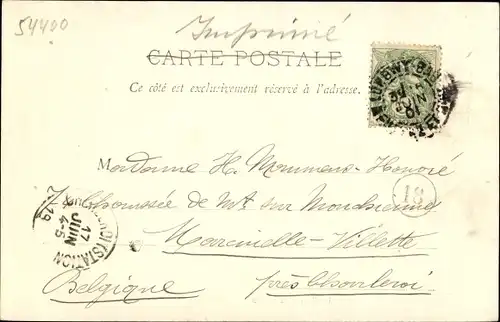 54400
Imprimé
CARTE POSTALE
Ce côté est exclusivement réservé à l'adresse.
Madame H. Mommens-Honoré
Chaussée de Mt sur Marchienne
18
Marcinelle-Villette
Belgique près Charleroi
17
JUIN
4-5
(STATION)